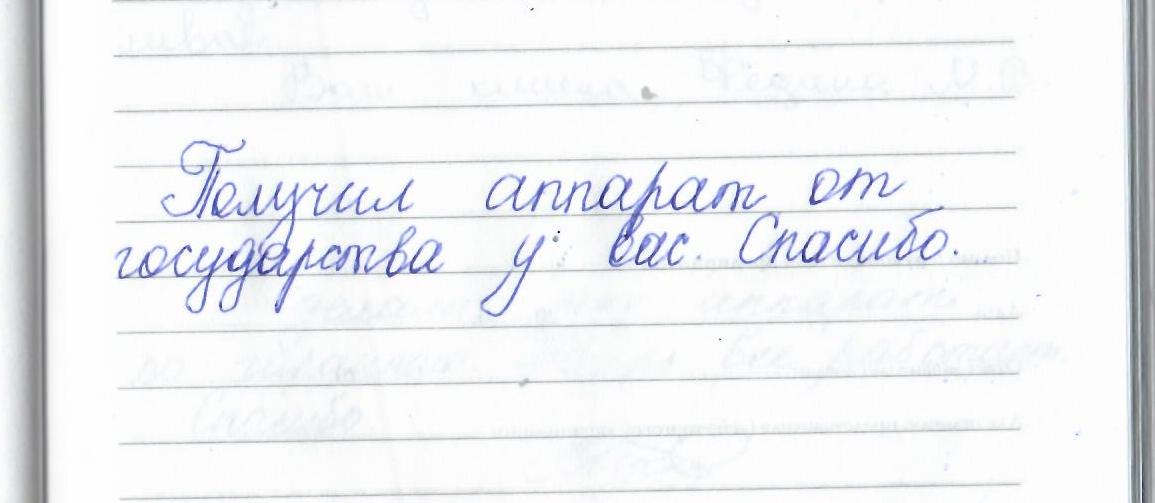 Получил аппарат от
государства у вас. Спасибо.